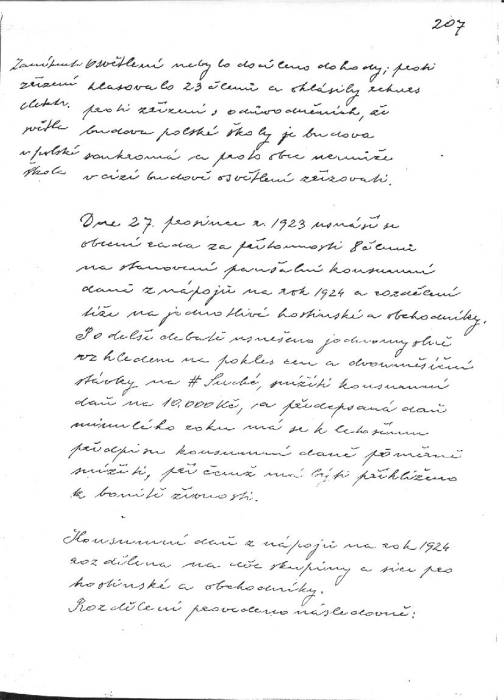 207
Zamítnutí
zřízení
elektr.
světla
v polské
škole
osvětlení nebylo docíleno dohody; proti
hlasovalo 23 členů a ohlásily rekurs
proti zřízení s odůvodněním, že
budova polské školy je budova
soukromá a proto obec nemůže
v cizí budově osvětlení zřizovati.
Dne 27. prosince r. 1923 usnáší se
obecní rada za přítomnosti 8 členů
na stanovení paušální konsumní
daně z nápojů na rok 1924 a rozdělení
téže na jednotlivé hostinské a obchodníky.
Po delší debatě usnešeno jednomyslně
vzhledem na pokles cen a dvouměsíční
stávky na # Suché, snížiti konsumní
daň na 10.000 Kč, a předepsaná daň
minulého roku má se k letošnímu
předpisu konsumní daně poměrně
snížiti, při čemž má býti přihlíženo
k bonitě živnosti.
Konsumní daň z nápojů na rok 1924
rozdělena na dvě skupiny a sice pro
hostinské a obchodníky.
Rozdělení provedeno následovně: